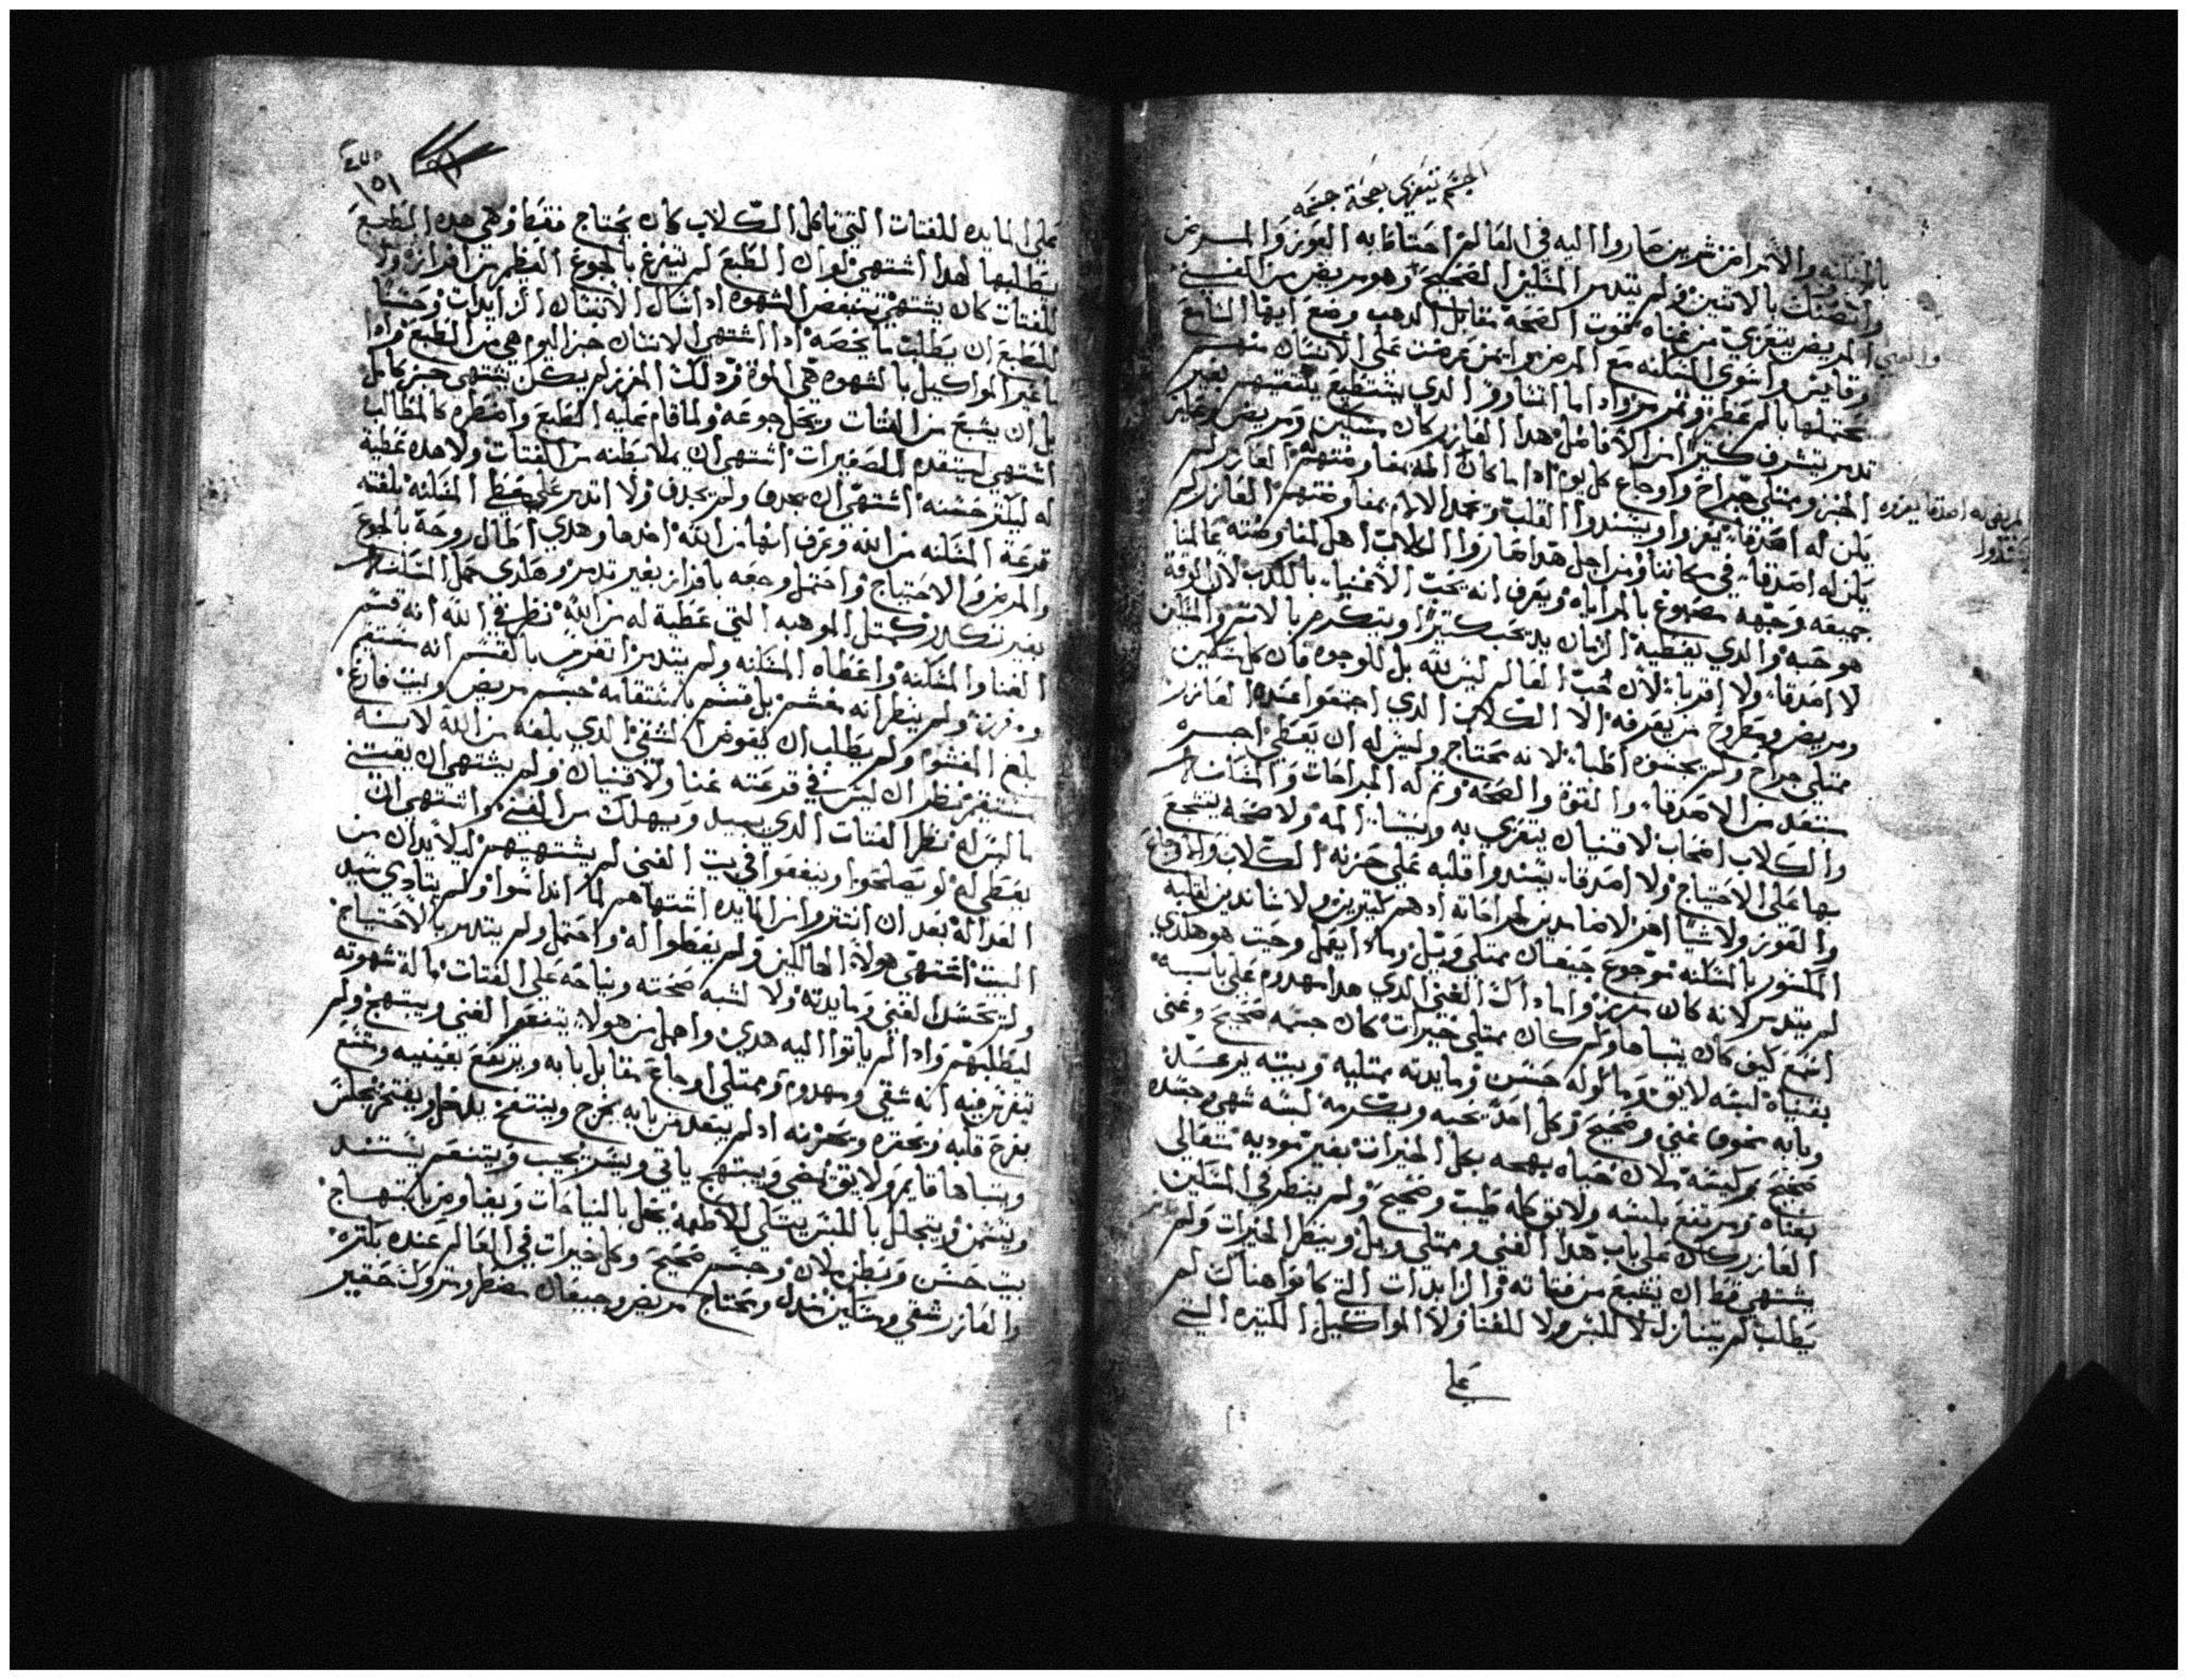 الجسم يتعزي بصحة جسمه
بالمسكنه والامراض شرين صاروا اليه في العالم احتاطا به العوز والمرض
وانضنك بالاتنين ولم يتدمر المسكين الصحيح وهو مريض من الغني
والغني المريض يتعزي من غناه بقوت الصحه مقابل الدهب وضع ايها السامع
وقايس وانتوي المسكنه مع المرض وايمن عرضت علي الانسان منهم
يحتملها بالم عظيم وتمرمر واداما اتساووا الدي يستطيع يلتقيهم بغير
تدمر يتشرف كتيرا من الافاضل هدا العازر كان مسكين ومريض وعايز
الخبز وممتلي جراح واوجاع كل يوم اداما كان المه بمفاوضتهم العازر لم
المريض له اصدقا يعزوه
ويشدوا
يكن له اصدقاء يعزوا ويشددوا القلب وتجد الايام بمفاوضتهم العازر لم
يكن له اصدقاء في مكاننا ومن اجل هدا صاروا الكلاب اهل لمفاوضته عالمنا
جميعه وجهه مصبوغ بالمراياه ويعرف انه يحب الاغنياء بالكدب لان الوقة
هو حبه والدي يعطيه الزمان يد يحب كتيرا ويتكرم بالاسر والمسكين
لا اصدقاء ولا اقرباء لان حب العالم ليس لله بل للوجوه فان كان مسكين
ومريض ومطروح من يعرفه الا الكلاب الدي اجتمعوا عند العازر
ممتلي جراح ولم يجسوه اطباء لانه محتاج وليس له ان يعطي اجره
ستعد من الاصدقاء والقوة والصحه وتم له الجراحات والمسكنه
والكلاب اصحاب لا قنيان يتعزي به وينسا المه ولا صحه يتشجع
بها علي الاحتياج ولا اصدقاء يشددوا قلبه علي حزنه الكلاب والاوجاع
والعوز ولا شيا اخر لا ضامدين لجراحاته ادهم كتيرين ولا ساندين لقلبه
المكسور بالمسكنه موجوع جيعان ممتلي ويل وماذا يعمل وحيت هو هكدي
لم يتدمر لانه كان مرمز واما داك الغني الدي هدا مهدوم علي بابه
اسمع كيف كان يتباها وكم كان ممتلي خيرات كان جسمه صحيح وغني
بقنياه لبسه لايق وماكوله حسن ومايدته ممتليه وبيته يرعسل
وبابه بخوف غني وصحيح وكل احد يحبه ويكرمه لبسه شهي جسده
صحيح مركبته ملان حياه بهجه بكل الخيرات بغير موديه متعالي
بغناه ومرتفع بلبسه ولايق كله طيب وصحيح ولم ينظر في المسكين
العازر كان علي باب هدا الغني وممتلي ويل وينظر الخيرات ولم
يشتهي فقط ان يشبع من فتاته والزايدات التي كانوا هناك لم
يطلب لم يتنازل لا للبس ولا للغنا ولا المواكيل الكتيره التي
علي
١٥١
علي المايده للفتات التي تاكل الكلاب كان يحتاج فقط وهي هده الطبع
يطلبها لهدا اشتهي لو ان الطبع لم يتفرغ بالجوع العظيم من افراز ولا
للفتات كان يشتهي تتبعض الشهوه اداسال الانسان الزايدات وحسنا
للطبع ان يطلب ما يخصه ادا اشتهي الانسان خبز اليوم هي من الطبع وادا
ما غير المواكيل بالشهوه هي الموة ودلك المعزز لم يكن يشتهي خبز كامل
بل ان يشبع من الفتات ويحل جوعه ولما قام عليه الطبع واضطره كالمطالب
اشتهي ليتقده الصغيرات اشتهي ان يملا بطنه من الفتات ولا هده عطيه
له ليلتر خشنه اشتهي ان يجدف ولم يجدف ولا اتدمر علي حظ المسكنه بلغته
قرعة المسكنه من الله وعرف انها من الله اخدها وهدي اطال روحه بالجوع
والمرض والاحتياج واحتمل وجعه بافراز بغير تدمر وهكدي حمل المسكنه
بغير تكدر كمتل الموهبه التي عطيه له من الله نظر في الله انه قسم
الغنا والمسكنه واعطاه المسكنه ولم يتدمر اتعرف بالقسم انه مستقيم
وفرز ولم ينظر انه مغشم بل قسم باستقامه جسم مريض وبيت فارغ
بلع المغشو ولم يطلب ان يقوض الشقي الدي بلغه من الله لانه
مستقيم نظر ان ليس في قرعته غنا ولا قنيان ولم يشتهي ان يقتني
ما ليس له نظر الفتات الدي يبيد ويهلك من الغني واشتهي ان
يعطي له لو يصلحوا وينفعوا في بيت الغني لم يشتهيهم ليلا يدان من
العداله بعد ان انتتروا من المايده اشتهاهم لما انداسوا ولم يتادي سيد
البيت اشتهي هولاء الهالكين ولم يعطوا له واحتمل ولم يتدمر بالاحتياج
ولم يحسد الغني ومايدته ولا لشبه صحته ونياحه علي الفتات مالة شهوته
ليطلبهم وادا لم ياتوا اليه هدي واحمل من هولاء يتنعم الغني ويبتهج ولم
تتفرس فيه انه شقي ومهدوم وممتلي اوجاع مقابل بابه ويرتفع بعينيه وشبع
يفرح قلبه وتحقره ويحزنه اد لم يتعد من بابه يخرج وينتفخ يدخل ويفتخر يجلس
ويتباها قايم ولايق يمضي ويبتهج ياتي ويسر يحبب ويتنعم يستند
ويتسمن ويتجلل باللبس يتكي للاطعمه يحل بالنياحات وتفاوض بابتهاج
بيت حسن وبطن ملان وجسم صحيح وكل خيرات في العالم عنده بكتره
والعازر شقي ومسكين مبتدل ومحتاج مريض وجيعان مضطر ومتروك حقير